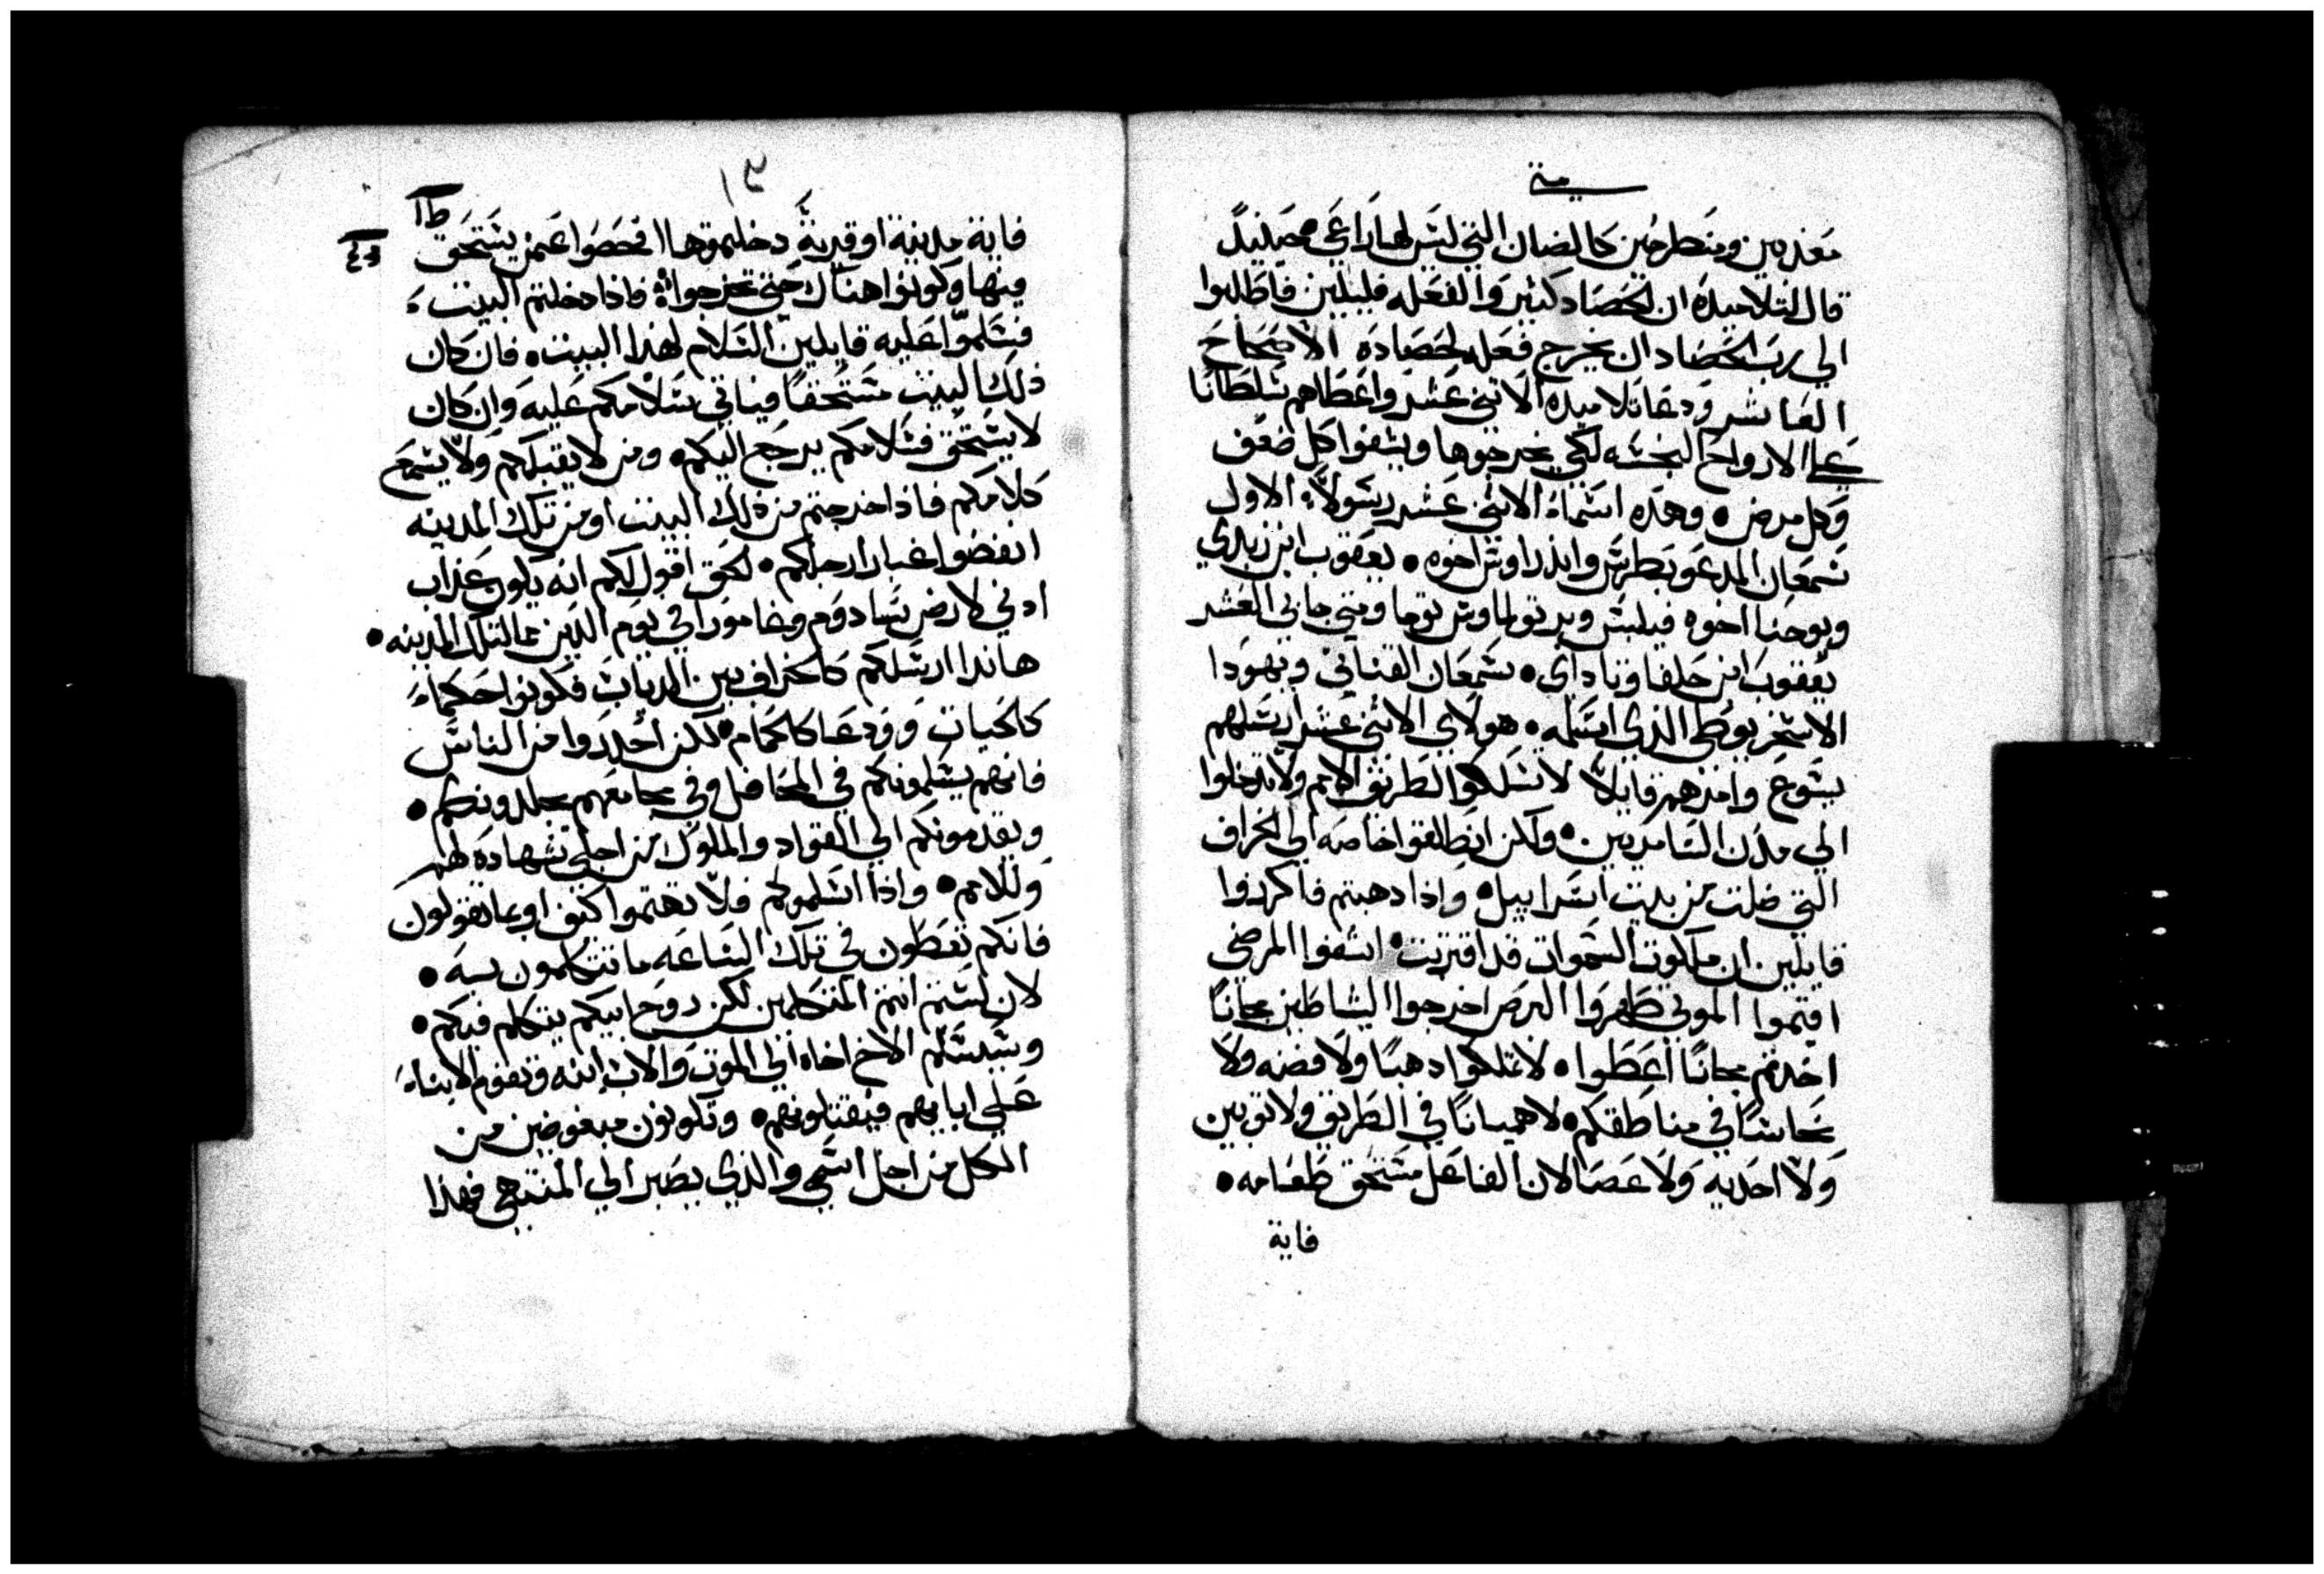 متي
معذبين ومنطرحين كالضان التي ليس لها راعي • حينيدً
قال لتلاميده ان الحصاد كثير والفعله قليلين فاطلبوا
الي رب الحصاد ان يخرج فعله لحصاده الاصحاح
العاشر ودعا تلاميده الاتني عشر واعطاهم سلطانًا
علي الارواح النجسه لكي يخرجوها ويشفوا كل ضعف
وكل مرض • وهذه اسماء الاثني عشر رسولاً الاول
سمعان المدعو بطرس واندراوس اخوه • يعقوب ابن زبدي
ويوحنا اخوه فيلبس وبرتولماوس توما ومتي جابي العشر
يعقوب ابن حلفا وتاداى • سمعان القناني ويهودا
الاسخريوطي الذي اسلمه • هولاي الاثني عشر ارسلهم
يسوع وامرهم قايلاً لا تسلكوا لطريق الامم ولا تدخلوا
الي مدن السامريين • ولكن انطلقوا خاصه الي الخراف
التي ضلت من بيت اسراييل • واذا دهبتم فاكرزوا
قايلين ان ملكوت السموات قد اقتربت • اشفوا المرضي
اقيموا الموتي طهروا البرص اخرجوا الشياطين مجانًا
اخدتم مجانًا اعطوا • لا تملكوا دهبًا ولا فضه ولا
نحاسًا في مناطقكم • لا هميانًا في الطريق ولا توبين
ولا احديه ولا عصا لان الفاعل مستحق طعامه •
فاية
١٩
فاية مدينة او قرية دخلتموها افحصوا عمن يستحق
فيها وكونوا هناك حتي تخرجوا • فاذا دخلتم البيت
فسلموا عليه قايلين السلام لهذا البيت • فان كان
ذلك البيت مستحقًا فياتي سلامكم عليه وان كان
لا يستحق فسلامكم يرجع اليكم • ومن لا يقبلكم ولا يسمع
كلامكم فاذا خرجتم من ذلك البيت او من تلك المدينه
انفضوا غبار ارجلكم • الحق اقول لكم انه يكون عذاب
ادني لارض سادوم وغامورا في يوم الدين مما لتلك المدينه •
هاندا ارسلكم كالخراف بين الدياب فكونوا حكماء
كالحيات وودعا كالحمام • لكن احدروا من الناس
فانهم يسلمونكم في المحافل وفي مجامعهم يجلدونكم •
ويقدمونكم الي القواد والملوك من اجلي شهادة لهم
وللامم • واذا اسلموكم فلا تهتموا كيف او بما تقولون
فانكم تعطون في تلك الساعه ما تتكلمون به •
لان لستم انتم المتكلمين لكن روح ابيكم يتكلم فيكم •
وسيسلم الاخ اخاه الي الموت والاب ابنه وتقوم الابناء
علي ابايهم فيقتلونهم • وتكونون مبغوضين من
الكل من اجل اسمي والذي يصبر الي المنتهي فهذا